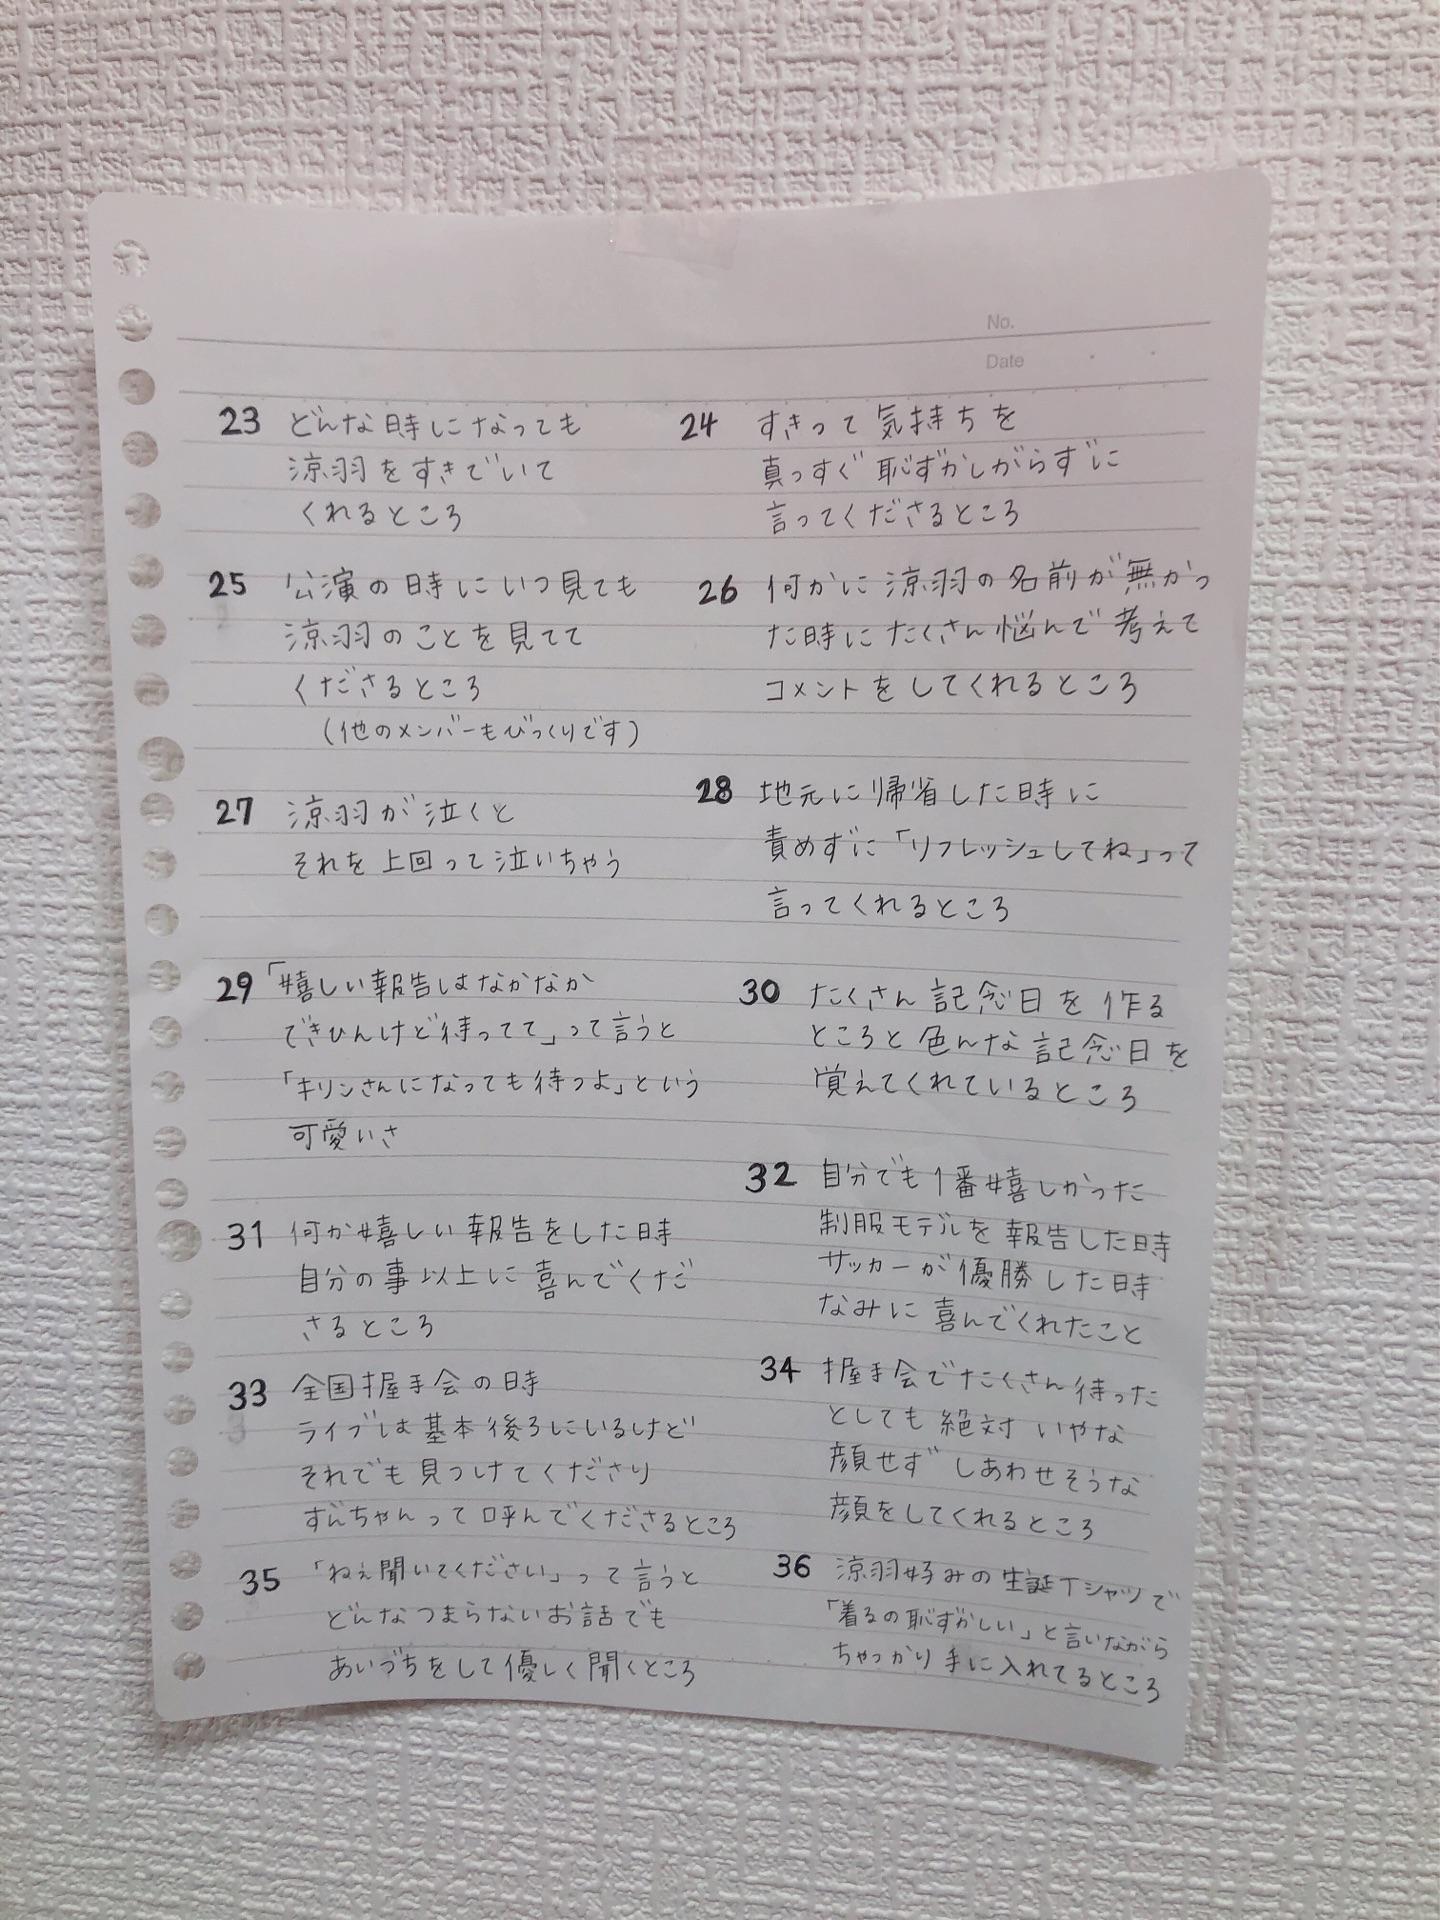 No.
Date
23 どんな時になっても
涼羽をすきでいて
くれるところ
24 すきって気持ちを
真っすぐ恥ずかしがらずに
言ってくださるところ
25 公演の時にいつ見ても
涼羽のことを見てて
くださるところ
(他のメンバーもびっくりです)
26 何かに涼羽の名前が無かっ
た時にたくさん悩んで考えて
コメントをしてくれるところ
27 涼羽が泣くと
それを上回って泣いちゃう
28 地元に帰省した時に
責めずに「リフレッシュしてね」って
言ってくれるところ
29 「嬉しい報告はなかなか
できひんけど待ってて」って言うと
「キリンさんになっても待つよ」という
可愛いさ
30 たくさん記念日を作る
ところと色んな記念日を
覚えてくれているところ
31 何か嬉しい報告をした時
自分の事以上に喜んでくだ
さるところ
32 自分でも1番嬉しかった
制服モデルを報告した時
サッカーが優勝した時
なみに喜んでくれたこと
33 全国握手会の時
ライブは基本後ろにいるけど
それでも見つけてくださり
ずんちゃんって呼んでくださるところ
34 握手会でたくさん待った
としても絶対いやな
顔せずしあわせそうな
顔をしてくれるところ
35 「ねぇ聞いてください」って言うと
どんなつまらないお話でも
あいづちをして優しく聞くところ
36 涼羽好みの生誕Tシャツで
「着るの恥ずかしい」と言いながら
ちゃっかり手に入れてるところ